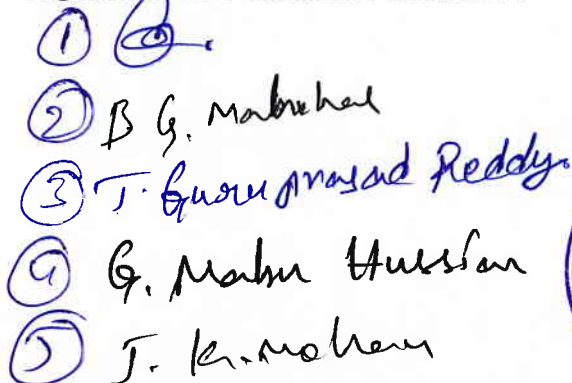 ①
② B G. Mabuhal
③ T. Guru prasad Reddy.
④ G. Mabu Hussian
⑤ J. K. Mohan